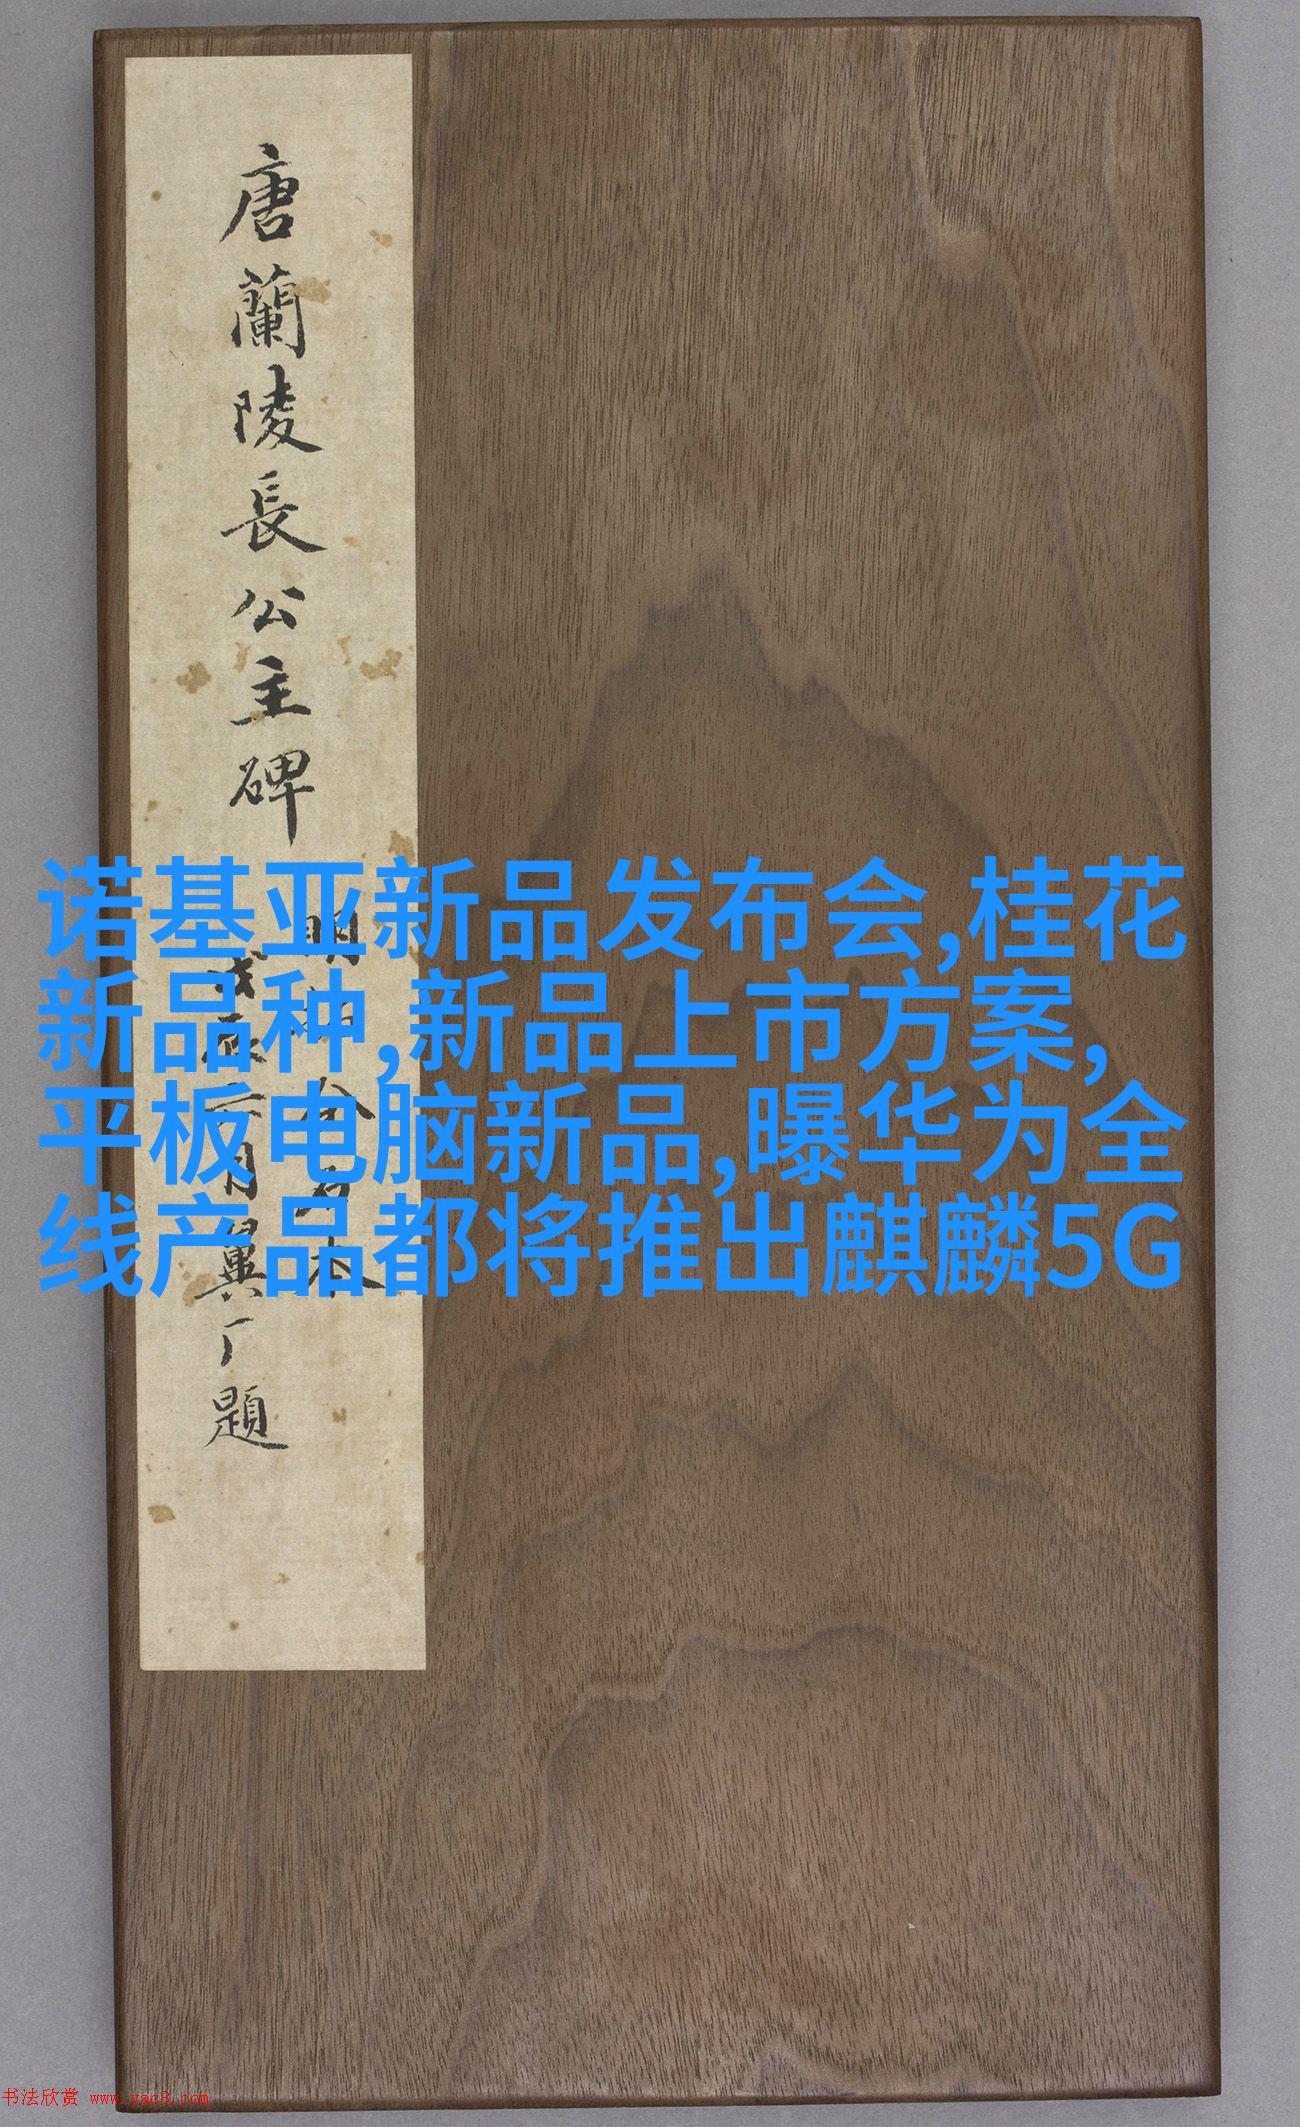 唐蘭陵長公主碑
諾基亚新品发布会,桂花
新品种,新品上市方案,
平板电脑新品,曝华为全
线产品都将推出麒麟5G
翼厂題
书法欣赏 www.yac8.com